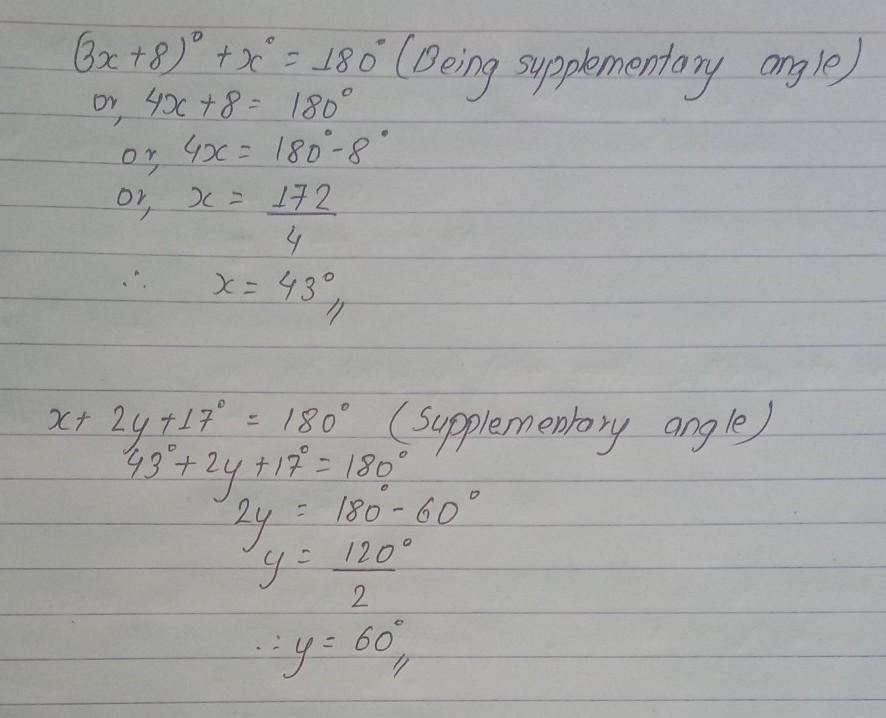 (3x+8)° + x° = 180° (Being supplementary angle)
or, 4x+8 = 180°
or, 4x = 180°-8°
or, x = 172/4
∴ x = 43°〃
x+ 2y+17° = 180° (Supplementary angle)
43°+2y+17°=180°
2y = 180°-60°
y = 120°/2
∴ y = 60°〃